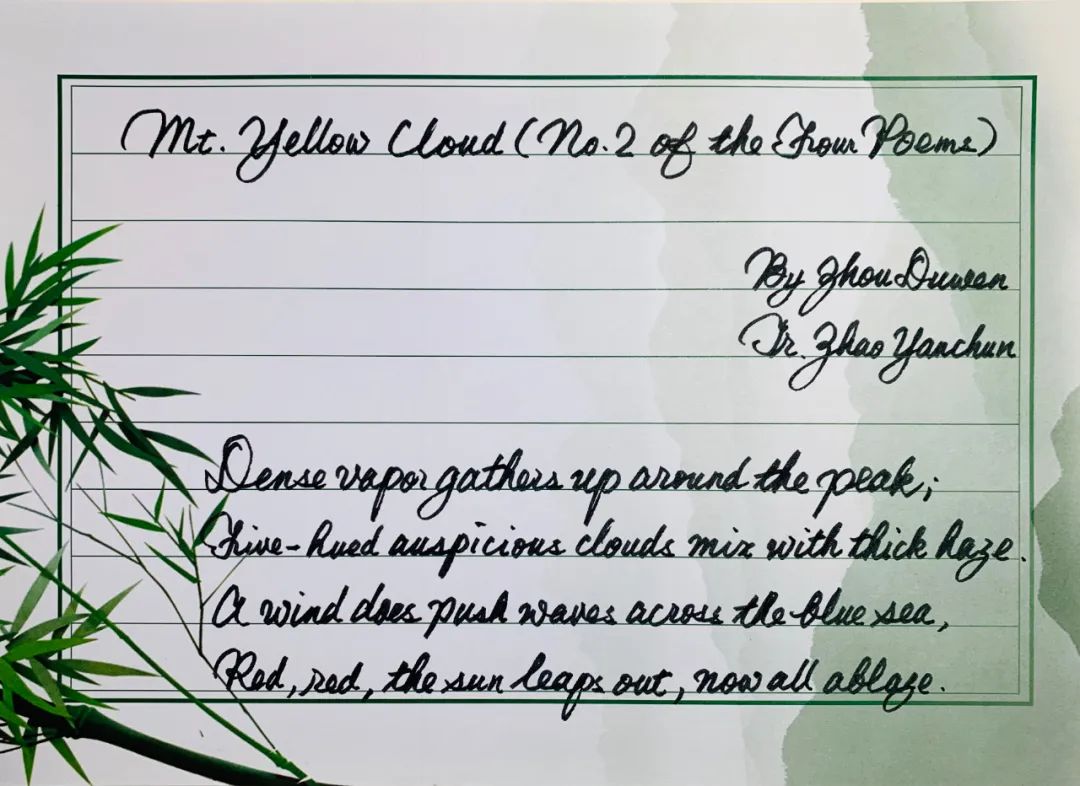 Mt. Yellow Cloud (No.2 of the Four Poems)
By Zhou Duwen
Tr. Zhao Yanchun
Dense vapor gathers up around the peak;
Five-hued auspicious clouds mix with thick haze.
A wind does push waves across the blue sea,
Red, red, the sun leaps out, now all ablaze.